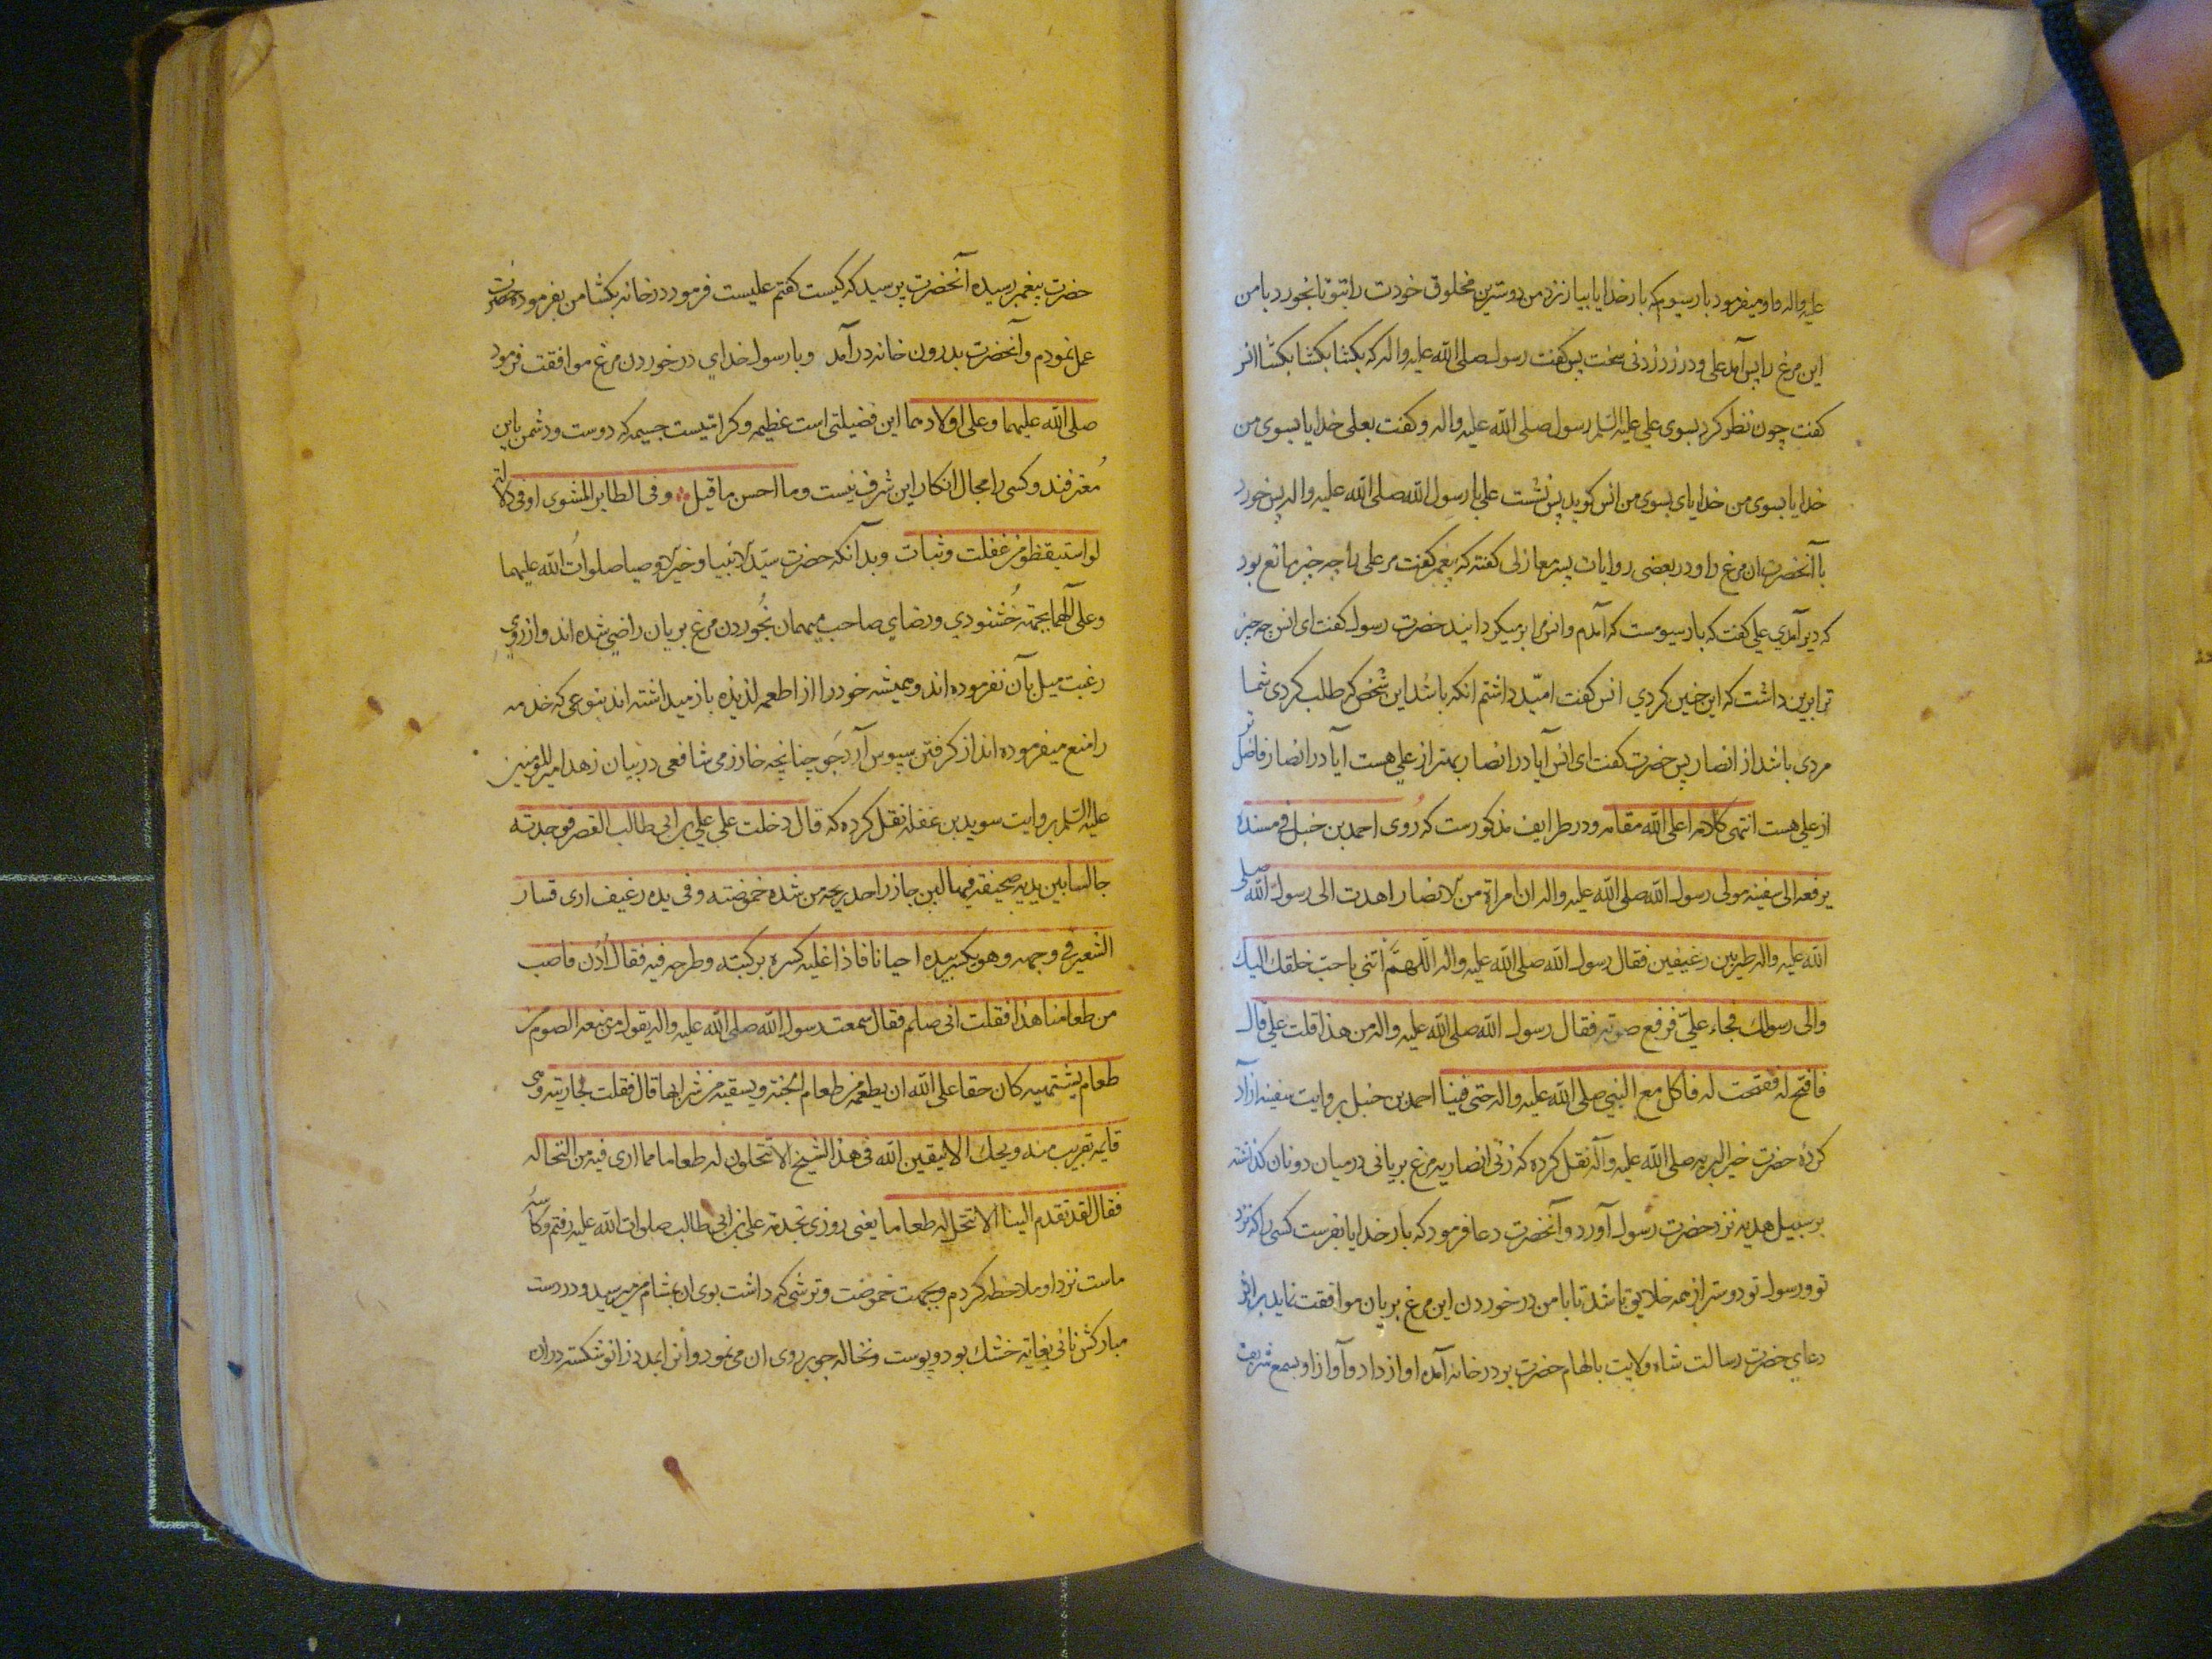 علیه واله واو میفرمود بار سیوم که بار خدایا بیار نزد من دوسترین مخلوق خودت را بتو تا بخورد با من
این مرغ را پس آمد علی و در زد زدنی سخت پس گفت رسول صلی الله علیه واله که بکشا بکشا بکشا انس
گفت چون نظر کرد بسوی علی علیه السلم رسول صلی الله علیه واله وگفت بعلی خدایا بسوی من
خدایا بسوی من خدایا بسوی من انس گوید پس نشست علی با رسول الله صلی الله علیه واله پس خورد
با آنحضرت ان مرغ را ودر بعضی روایات پسر مغازلی گفته که پیغمبر گفت مر علی را چه چیز مانع بود
که دیر آمدی علی گفت که بار سیومست که آمدم وانس مرا بر میگردانید حضرت رسول گفت ای انس چه چیز
ترا برین داشت که این چنین کردی انس گفت امید داشتم انکه باشد این شخص که طلب کردی شما
مردی باشد از انصار پس حضرت گفت ای انس آیا در انصار بهتر از علی هست آیا در انصار فاضل تر
از علی هست انتهی کلامه اعلی الله مقامه ودر طرایف مذکورست که روی احمد بن حنبل فی مسنده
یرفعه الی سفینه مولی رسول الله صلی الله علیه واله ان امراة من الانصار اهدت الی رسول الله صلی
الله علیه واله طیرا بین رغیفین فقال رسول الله صلی الله علیه واله اللهم أتنی باحب خلقك الیك
والی رسولك فجاء علی فرفع صوته فقال رسول الله صلی الله علیه واله من هذا قلت علی قال
فافتح له ففتحت له فاکل مع النبی صلی الله علیه واله حتی فنیا احمد بن حنبل بروایت سفینه آزاد
کرده حضرت خیر البریه صلی الله علیه وآله نقل کرده که زنی انصاریه مرغ بریانی در میان دو نان کذاشته
بر سبیل هدیه نزد حضرت رسول آورد وآنحضرت دعا فرمود که بار خدایا بفرست کسی را که نزد
تو ورسول تو دوستر از همه خلایق باشد تا با من در خوردن این مرغ بریان موافقت نماید براثر
دعای حضرت رسالت شاه ولایت بالهام حضرت بر در خانه آمده اواز داد وآواز او بسمع شریف
حضرت پیغمبر رسیده آنحضرت پرسید که کیست گفتم علیست فرمود در خانه بکشا من بفرموده حضرت
عمل نمودم وآنحضرت بدرون خانه در آمد وبا رسول خدای در خوردن مرغ موافقت فرمود
صلی الله علیهما وعلی اولادهما این فضیلتی است عظیمه وکرامتیست جسیمه که دوست ودشمن باین
معترفند وکسی را مجال انکار این شرف نیست وما احسن ما قیل وفی الطایر المشوی اوفی دلالة
لو استیقظوا من غفلت وثبات وبدانکه حضرت سید الانبیا وخیر الاوصیا صلوات الله علیهما
وعلی آلهما بجهته خشنودی ورضای صاحب میهمان بخوردن مرغ بریان راضی شده اند واز روی
رغبت میل بآن نفرموده اند وهمیشه خود را از اطعمه لذیذه باز میداشته اند بنوعی که خدمه
را منع میفرموده اند از گرفتن سپوس آرد جو چنانچه خازرمی شافعی در بیان زهد امیر المؤمنین
علیه السلم بروایت سوید بن غفله نقل کرده که قال دخلت علی علی بن ابی طالب القصر فوجدته
جالسا بین یدیه صحیفه فیها لبن حاذر اجد ریحه من شده حموضته وفی یده رغیف اری قسار
الشعیر فی وجهه وهو یکسر بیده احیانا فاذا غلبه کسره برکبته وطرحه فیه فقال ادن فاصب
من طعامنا هذا فقلت انی صایم فقال سمعت رسول الله صلی الله علیه واله یقول من منعه الصوم من
طعام یشتهیه کان حقا علی الله ان یطعمه من طعام الجنه ویسقیه من شرابها قال فقلت لجاریته وهی
قایمه بقریب منه ویحك الا تتقین الله فی هذا الشیخ الا تنخلون له طعاما مما اری فیه من النخاله
فقال لقد تقدم الینا الا ننخل له طعاما یعنی روزی بخدمة علی بن ابی طالب صلوات الله علیه رفتم وکاسه
ماست نزد او ملاحظه کردم وبجهت حموضت وترشی که داشت بوی ان بمشام میرسید ودر دست
مبارکش نانی بغایة خشك بود وپوست ونخاله جو بر روی ان می نمود وانرا بمدد زانو شکسته در ان